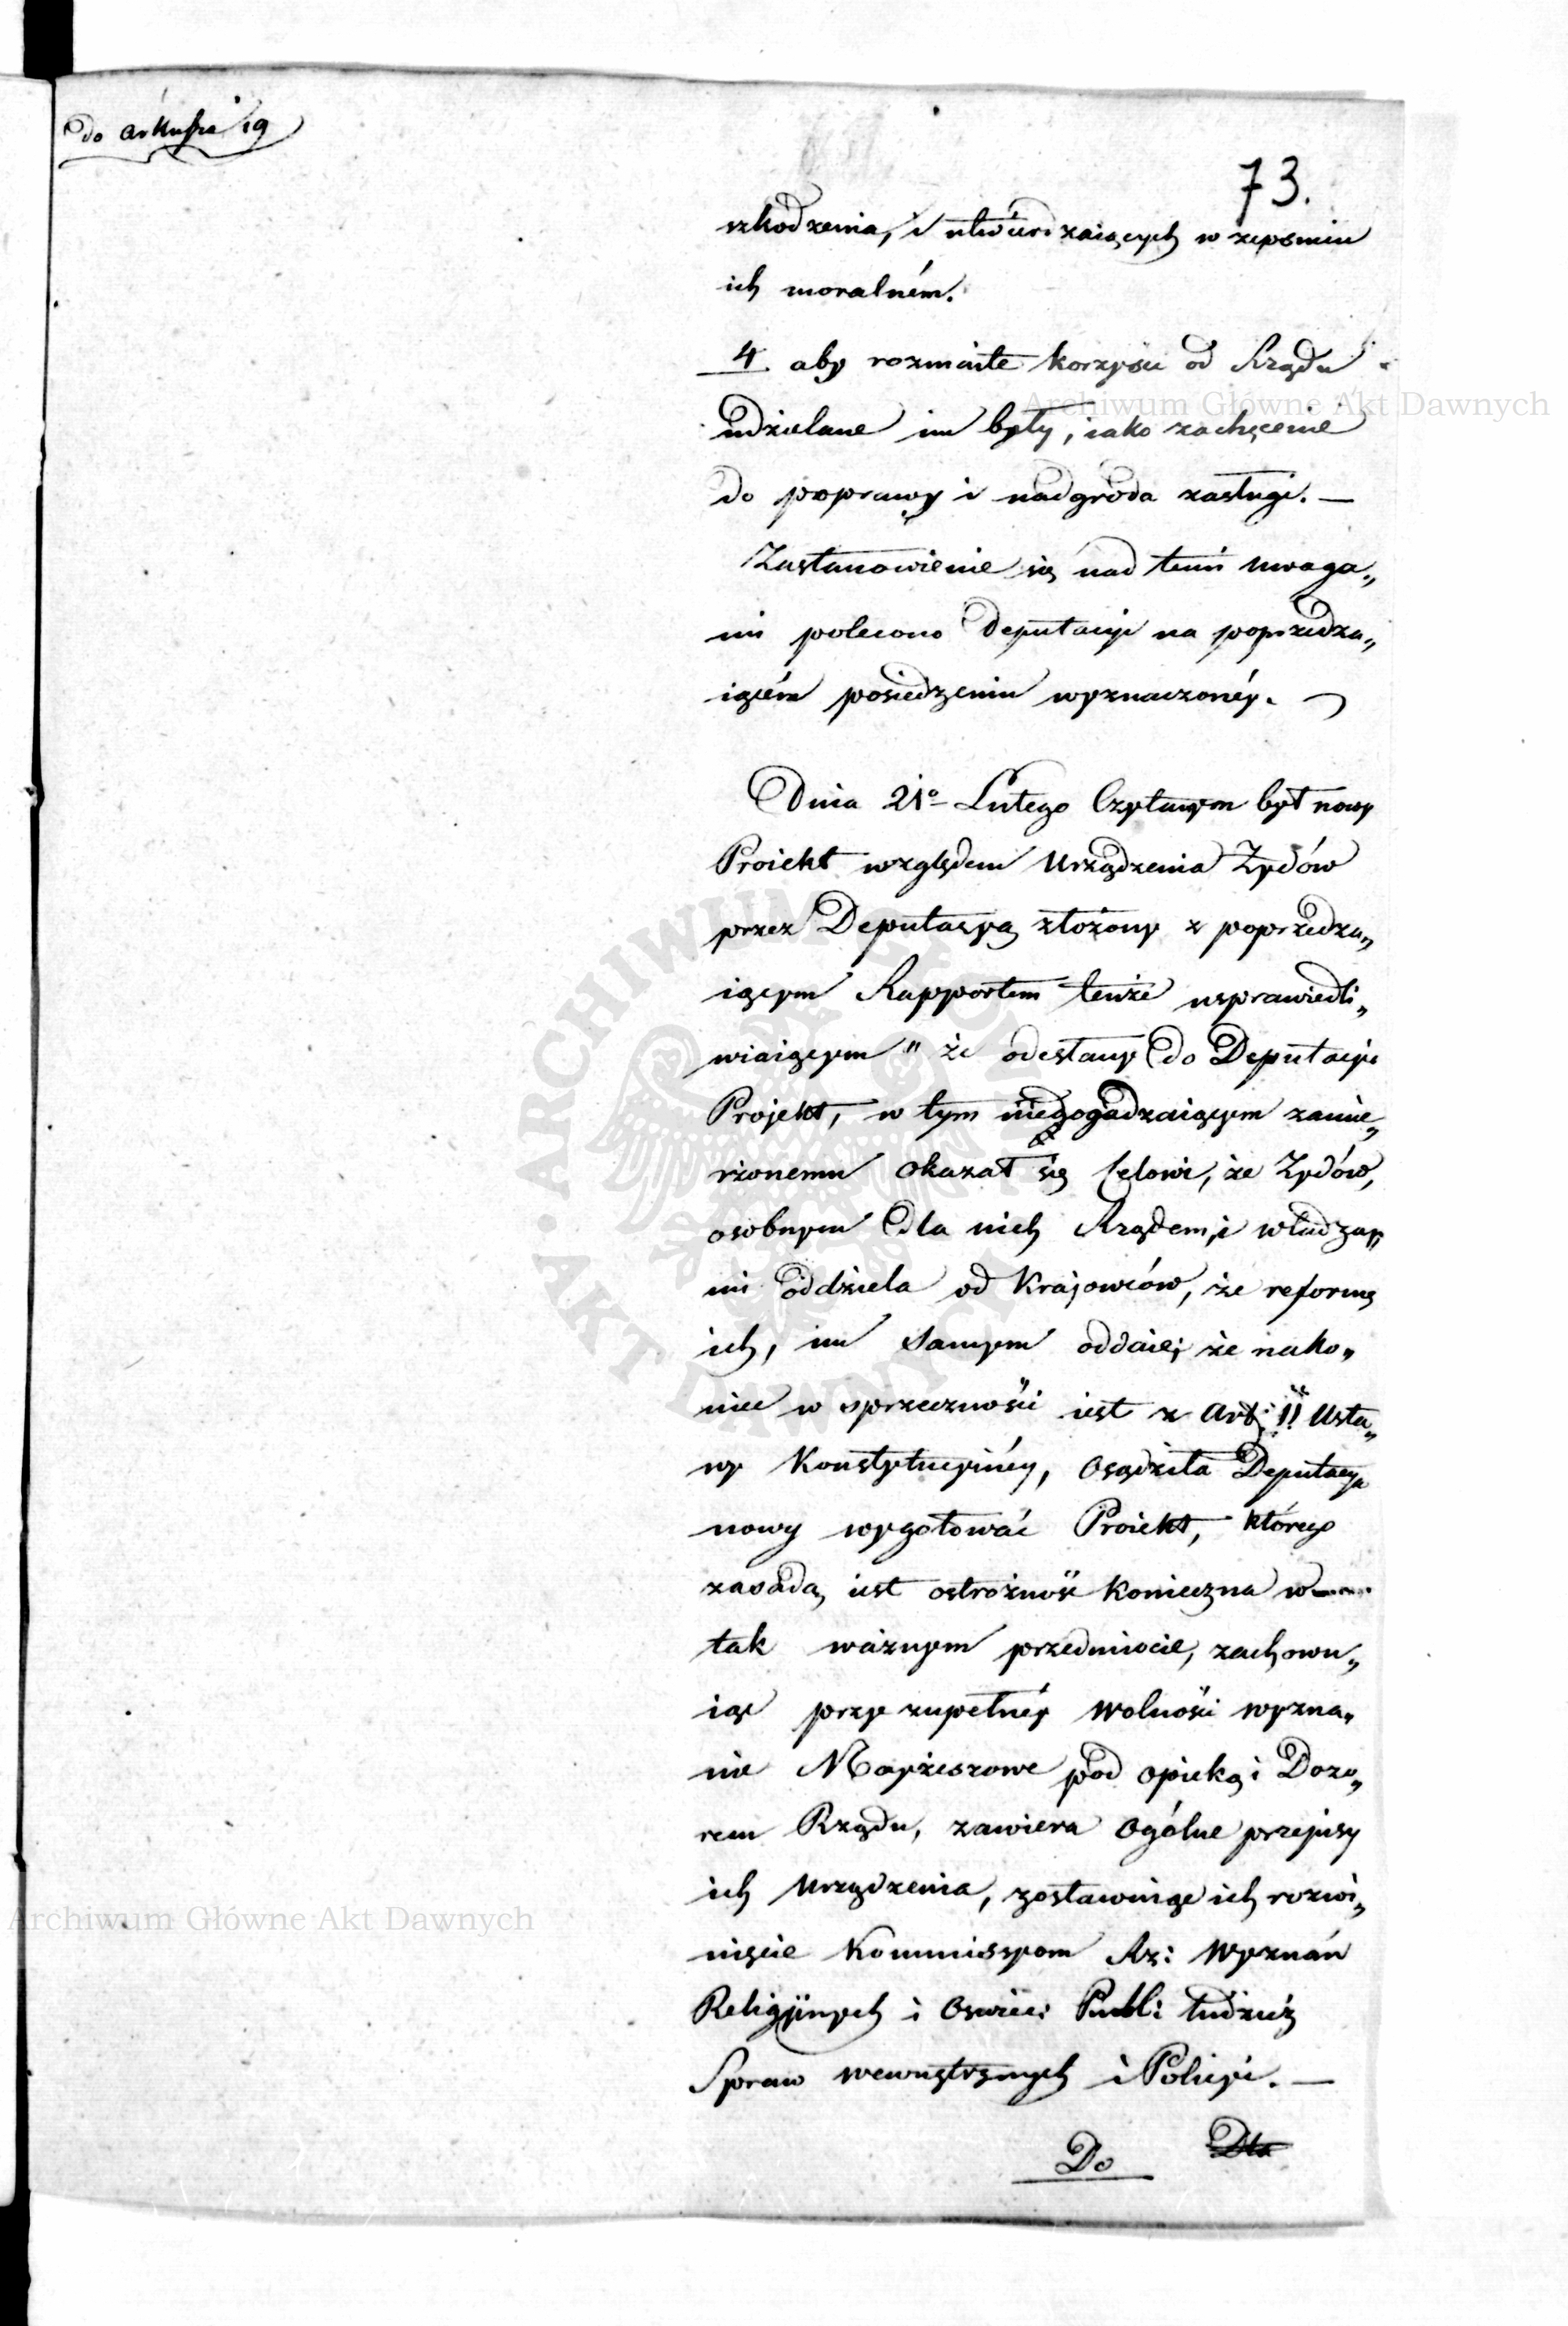 do arkusza 19
73.
szkodzenia, i utwierdzaiących w zepsuciu
ich moralném.
4. aby rozmaite korzyści od Rządu
udzielane im były, iako zachęcenie
do poprawy i nadgroda zasługi. —
Zastanowienie się nad temi uwaga„
mi polecono Deputacyi na poprzedza„
iącém posiedzeniu wyznaczonéy.
Dnia 21º Lutego Czytanym był nowy
Proiekt względem Urządzenia Żydów
przez Deputacyą złożony z poprzedza„
iącym Rapportem tenże usprawiedli„
wiaiącym " że odesłany do Deputacyi
Projekt, w tym niedogadzaiącym zamie„
rżonemu okazał się Celowi, że Żydów,
osobnym dla nich Rządem, i władza„
mi oddziela od Krajowców, że reformę
ich, im samym oddaie; że nako„
niec w sprzeczności iest z Art: 11 Usta„
wy Konstytucyinéy, osądziła Deputacya
nowy wygotować Proiekt, którego
zasadą iest ostrożność konieczna w
tak ważnym przedmiocie, zachowu„
iąc przy zupełnéy wolności wyzna„
nie Mojżeszowe pod opieką i Dozo„
rem Rządu, zawiera Ogólne przepisy
ich urządzenia, zostawuiąc ich rozwi„
nięcie Kommissyom Rz: Wyznań
Religyinych i Oswiec: Publ: tudzież
Spraw wewnętrznych i Policyi. —
Do Dla